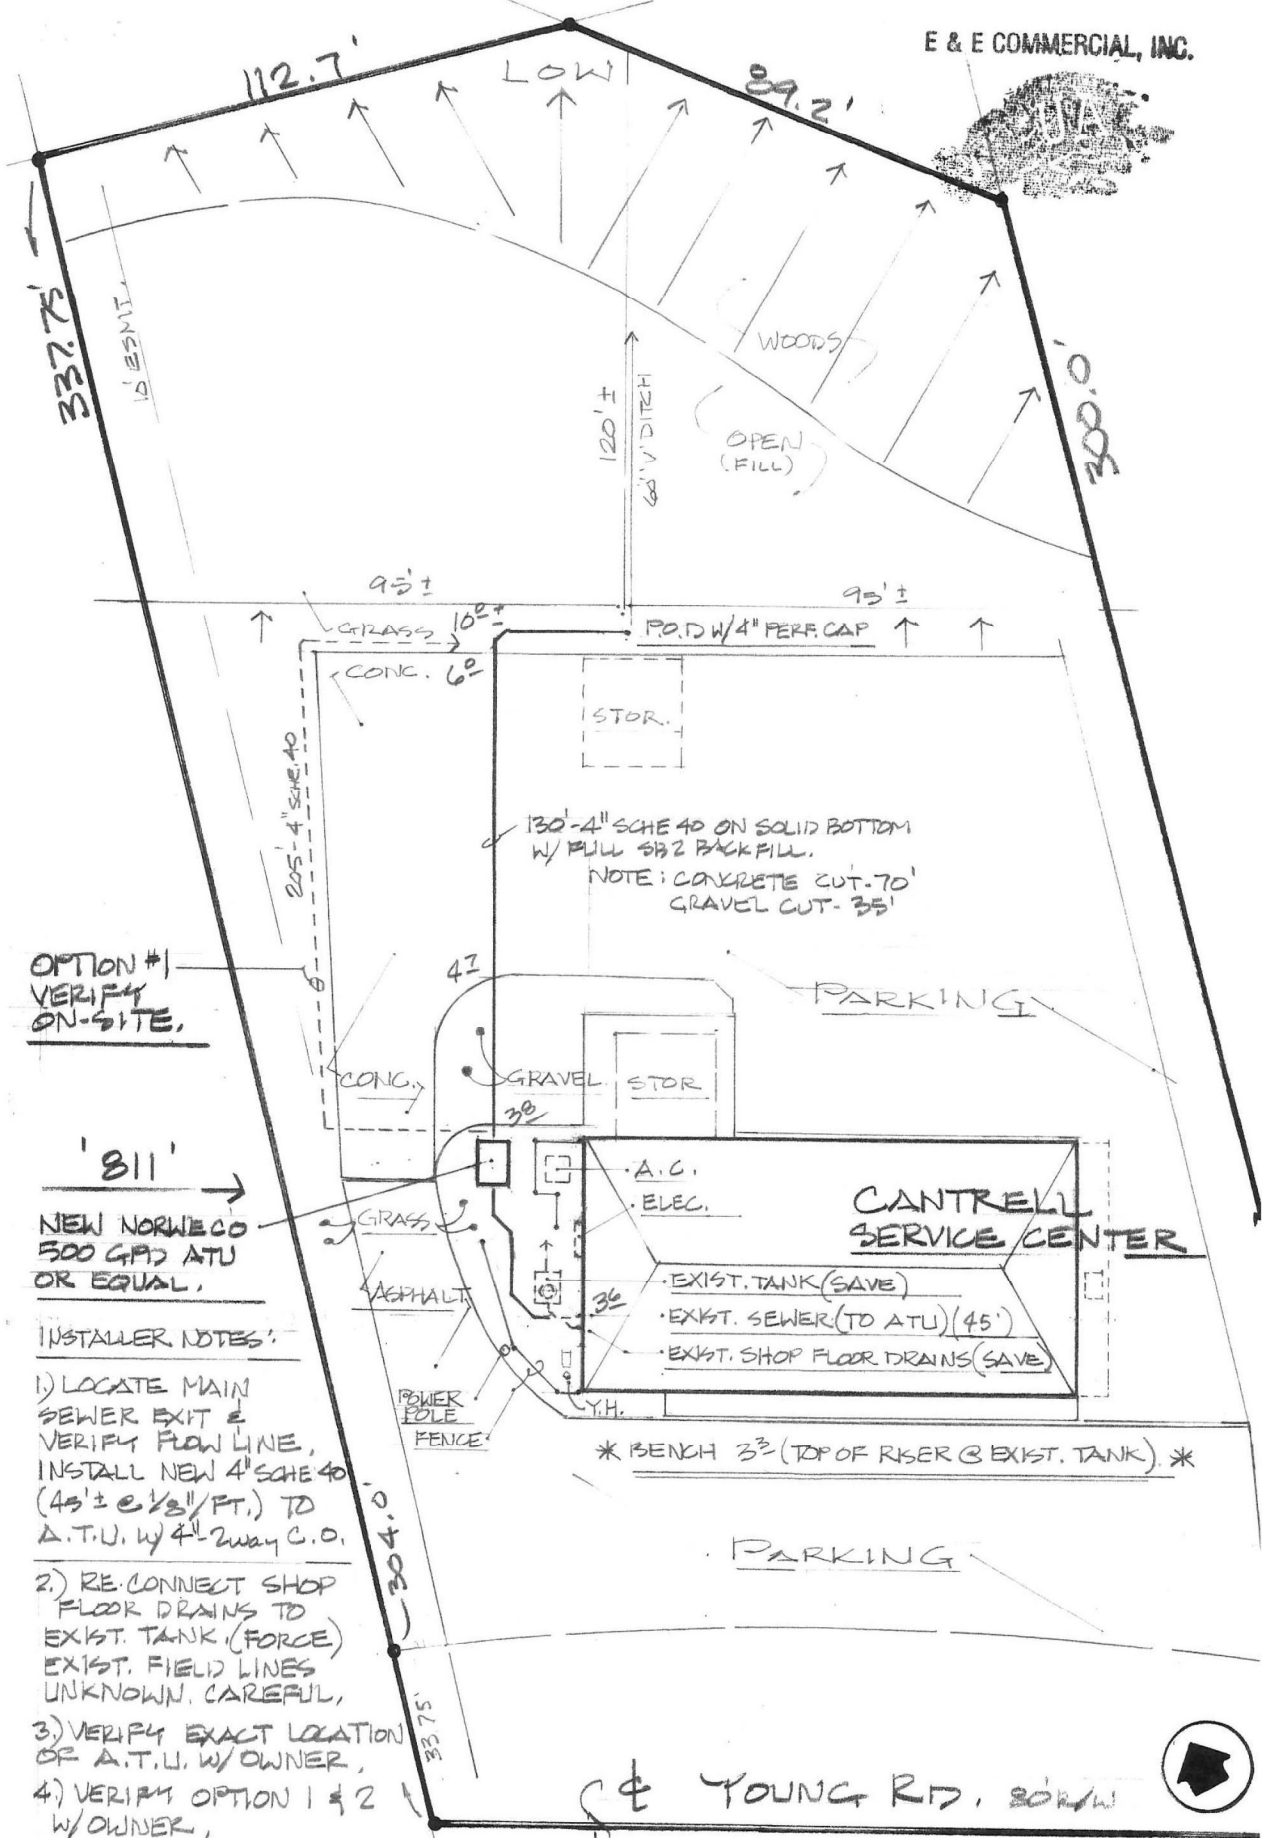 E & E COMMERCIAL, INC.
112.7'
LOW
89.2'
337.75'
10' ESMT.
WOODS
OPEN
(FILL)
300.0'
120' ±
'V' DITCH
95' ±
95' ±
GRASS
10⁰ ±
P.O.D W/4" PERF. CAP
CONC. 6⁰
STOR.
205'-4" SCHE. 40
130'-4" SCHE 40 ON SOLID BOTTOM
W/ FULL SB2 BACKFILL.
NOTE: CONCRETE CUT-70'
GRAVEL CUT- 35'
OPTION #1
VERIFY
ON-SITE.
4⁷
PARKING
CONC.
GRAVEL
STOR
3⁸
'811'
A.C.
ELEC.
CANTRELL
SERVICE CENTER
NEW NORWECO
500 GPD ATU
OR EQUAL.
GRASS
ASPHALT
EXIST. TANK (SAVE)
3⁶
EXIST. SEWER (TO ATU) (45')
EXIST. SHOP FLOOR DRAINS (SAVE)
POWER
POLE
FENCE
Y.H.
* BENCH 3³ (TOP OF RISER @ EXIST. TANK). *
INSTALLER NOTES:
1.) LOCATE MAIN
SEWER EXIT &
VERIFY FLOW LINE,
INSTALL NEW 4" SCHE 40
(45' ± @ 1/8"/FT.) TO
A.T.U. W/ 4"-2way C.O.
2.) RE-CONNECT SHOP
FLOOR DRAINS TO
EXIST. TANK. (FORCE)
EXIST. FIELD LINES
UNKNOWN. CAREFUL,
3.) VERIFY EXACT LOCATION
OF A.T.U. W/ OWNER,
4.) VERIFY OPTION 1 & 2
W/ OWNER,
304.0'
33.75'
PARKING
℄ YOUNG RD. 80' R/W